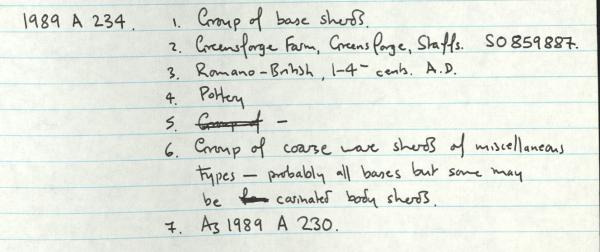 1989 A 234. 1. Group of base sherds.
2. Greensforge Farm, Greensforge, Staffs. SO859887.
3. Romano-British, 1-4th cents. A.D.
4. Pottery
5. Group of -
6. Group of coarse ware sherds of miscellaneous
types - probably all bases but some may
be carinated body sherds.
7. As 1989 A 230.